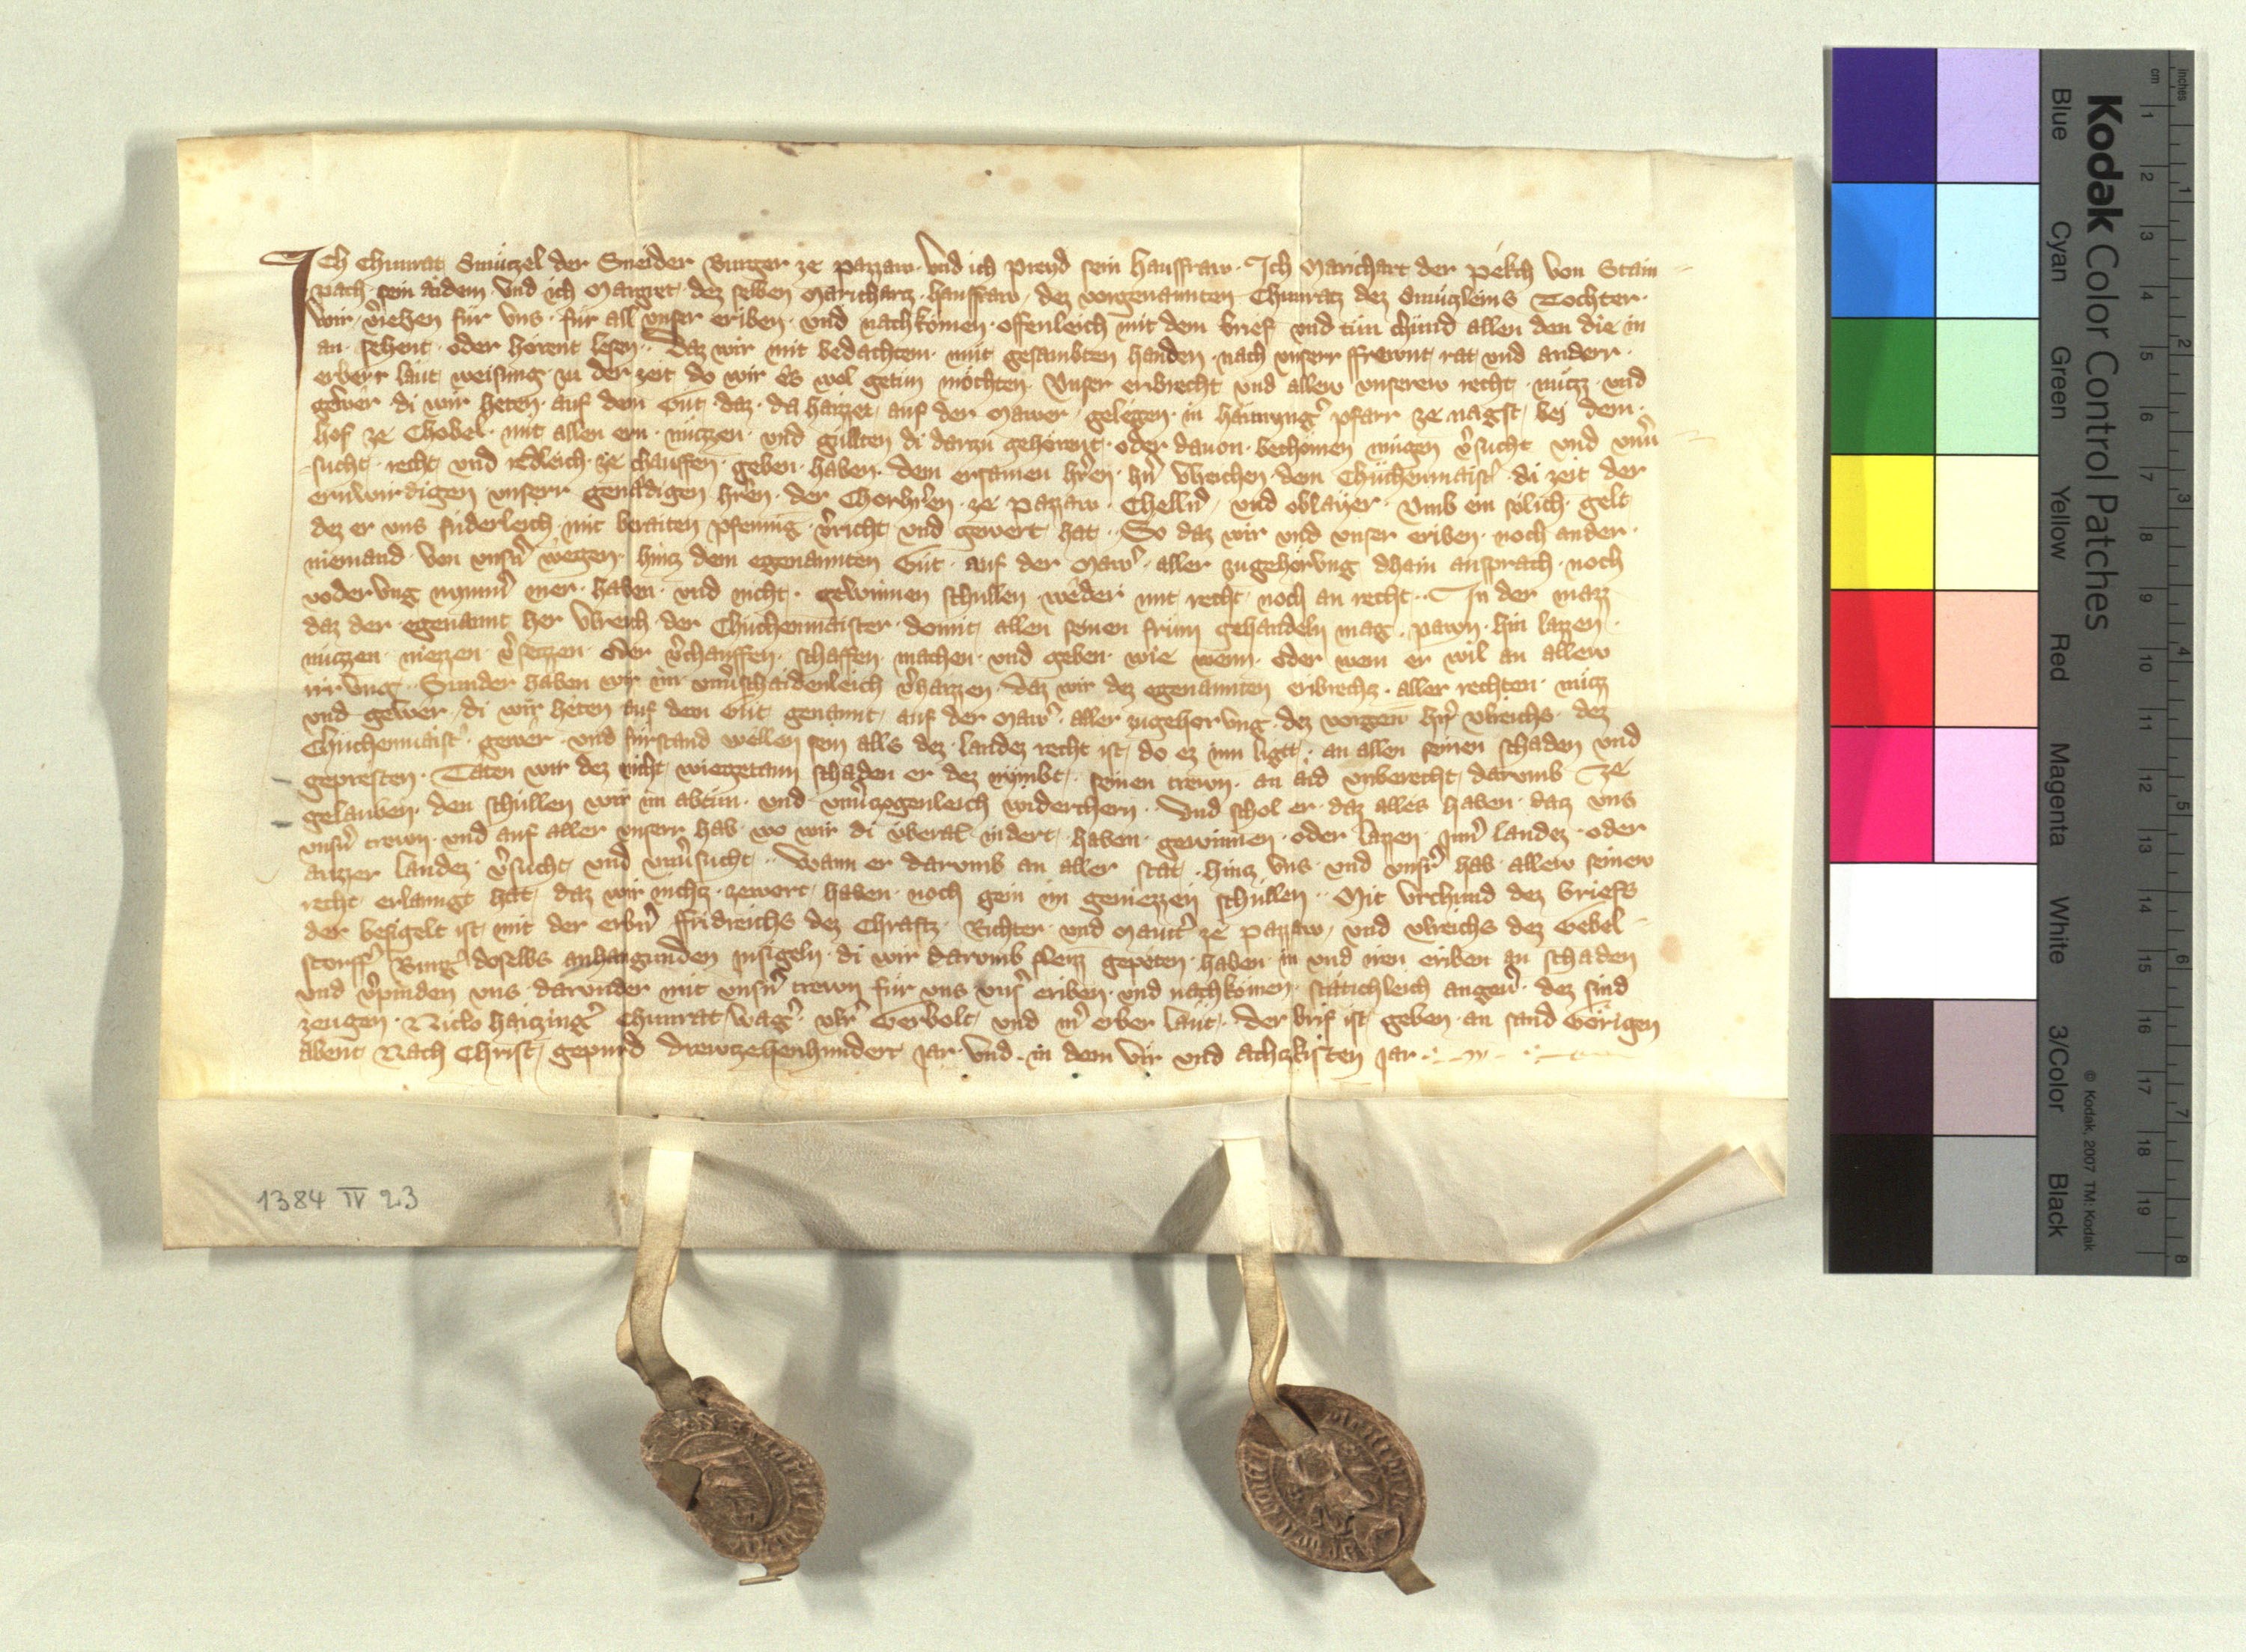 Ich Chunrat Smuͤczel der Sneider Burger ze Pazzaw · Vnd ich Preyd sein Hausfraw · Ich Marichart der Pekch von Stain
pach sein aidem Vnd ich Margret dez selben Marichartz hausfraw dez vorgenannten Chunratz dez Smuͤczleins Tochter ·
Wir v̾iehen fuͤr vns · fuͤr all vnser eriben · vnd nachkomen · offenleich mit dem brief vnd tuͤn chuͤnd allen den die in
an · sehent · oder horent lesen · Daz wir mit bedachtem · muͤt gesambten handen · nach vnserr ffrewnt rat vnd anderr ·
erberr laut weisung zu der zeit do wir es wol getuͤn mochten · Vnser eribrecht vnd allew vnserew recht · nuͤcz · vnd
gewer · di wir heten · auf dem Guͤt · daz · da haizzet auf der Mawer gelegen · in pfarr ze nagst bei dem
hof ze Chobel · mit allen ern · nuczzen · vnd guͤllten di darzu gehorent · oder dauon · bechomen muͤgen v̾sucht vnd vnv̾
sucht · recht vnd redleich · ze chauffen · geben · haben · dem ersamen h̾ren · h̾n Vlreichen · dem Chuͤchenmaist̾ · di zeit der
ernwirdigen vnserr genaͤdigen h̾ren · der Chorh̾ren · ze Pazzaw · Chelln̾ vnd oblaÿer · Vmb ein soͤlich · gelt
dez er vns fuͤderleich · mit beraiten pfenning v̾richt vnd gewert hat · So daz wir vnd vnser eriben · noch ander ·
niemand · von vnsn̾ wegen · hincz dem egenannten Guͤt · auf der Maw̾ · aller zugehorvng dhain ansprach · noch
vodervng nymm̾ mer · haben · vnd nicht · gewinnen schullen · weder mit recht noch an recht · In der mazz
daz der egenannt her Vlreich · der Chuͤchenmaister · domit allen seinen frum gehandeln mag · pawn · hin lazzen ·
nuczzen · niezzen · v̾seczzen · oder v̾chauffen · schaffen · machen · vnd geben · wie wenn · oder wem er wil an allew
irrvng · Sunder haben wir im vnu̾schaidenleich v̾haizzen · daz wir dez egenannten eribrechtz · aller rechten · nuͤcz
vnd gewer · di wir heten auf dem Guͤt genannt auf der Maw̾ · aller zugehorvng · dez vorgen̄ h̾n Vlreichs · dez
Chuͤchenmaist̾ · gewer · vnd fuͤrstand wellen sein alls dez · landez recht ist do ez inn ligtt · an allen seinen schaden vnd
gepresten · Taten wir dez nicht wiegetann schaden er dez nymbt seinen trewn · an aid vnberecht darumb ze
gelauben · den schullen wir im abtuͤn · vnd vnu̾zogenleich widerchern · Vnd schol er · daz alles haben · datz vns
vnsn̾ trewn · vnd auf aller vnserr hab · wo wir di vberal · indert · haben · gewinnen · oder lazzen Inn̾ landez · oder
auzzer landez · v̾sucht vnd vnu̾sucht · Wann er darumb an aller stat · hincz vns · vnd vnsr̾ hab · allew seinew
recht erlanngt hat daz wir nichtz · zewort haben · noch gein im geniezzen schullen · Mit vrchund dez briefs
der besigelt ist mit der erbn̾ ffridreichs dez Chraftz · Richter vnd Maut̾ ze Pazzaw vnd Vlreichs dez Gebel
storff̾ Burg̾ doselbs anhangunden insigeln · di wir darumb fleizz gepeten haben · in vnd iren eriben an schaden
vnd v̾pinden vns · darvnder mit vnsn̾ trewn fuͤr vns vns̾ eriben · vnd nachkomen · dez sind
zeugen · Niclo Haiczing̾ Chunrat Wag̾ · Gerbolt vnd m̾ erber laut · Der brif ist geben · an sand Goͤrigen
abent Nach Christ gepurd drewczehenhundert Jar · Vnd · in dem vir vnd achczkisten Jar
1384 IV 23
Kodak Color Control Patches
Blue Cyan Green Yellow Red Magenta White 3/Color Black
© Kodak, 2007 TM: Kodak
inches 1 2 3 4 5 6 7 8
cm 1 2 3 4 5 6 7 8 9 10 11 12 13 14 15 16 17 18 19